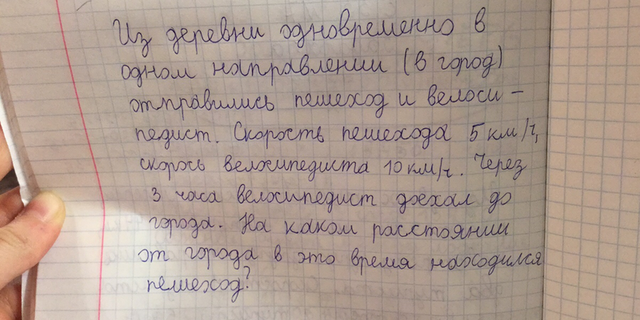 Из деревни одновременно в
одном направлении (в город)
отправились пешеход и велоси-
педист. Скорость пешехода 5 км/ч,
скорось велосипедиста 10 км/ч. Через
3 часа велосипедист доехал до
города. На каком расстоянии
от города в это время находился
пешеход?